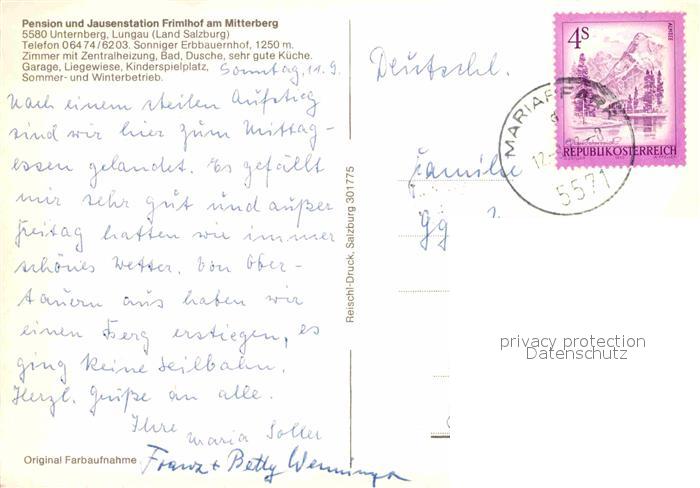 Pension und Jausenstation Frimlhof am Mitterberg
5580 Unternberg, Lungau (Land Salzburg)
Telefon 06474/6203. Sonniger Erbbauernhof, 1250 m.
Zimmer mit Zentralheizung, Bad, Dusche, sehr gute Küche.
Garage, Liegewiese, Kinderspielplatz,
Sommer- und Winterbetrieb.
Sonntag, 11.9.
Nach einem steilen Aufstieg
sind wir hier zum Mittag-
essen gelandet. Es gefällt
mir sehr gut und außer
Freitag hatten wir immer
schönes Wetter. Von Ober-
tauern aus haben wir
einen Berg erstiegen, es
ging keine Seilbahn.
Herzl. Grüße an alle.
Ihre
Maria Soller
Franz + Betty Wenninger
Original Farbaufnahme
Reischl-Druck, Salzburg 301775
Deutschl.
Familie
4S
ALMSEE
REPUBLIK ÖSTERREICH
MARIAPFARR
5571
privacy protection
Datenschutz